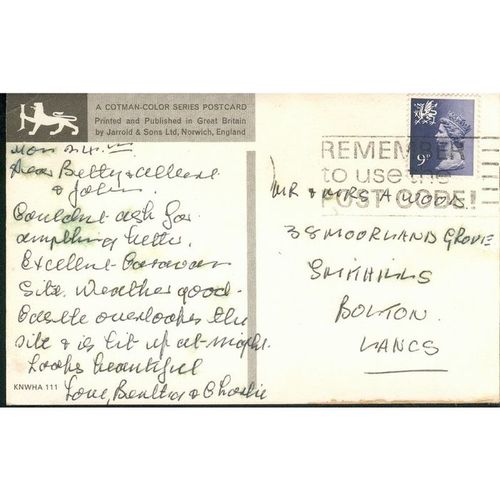 A COTMAN-COLOR SERIES POSTCARD
Printed and Published in Great Britain
by Jarrold & Sons Ltd, Norwich, England
9P
REMEMBER
to use the
POST CODE!
Mon
Dear Betty &
& John.
Couldn't ask for
anything better.
Excellent Caravan
Site. Weather good.
Castle overlooks the
site & is lit up at night.
Looks beautiful
Love, & Charlie
MR & MRS A WOOD
38 MOORLAND GROVE
SMITHILLS
BOLTON.
LANCS
KNWHA 111